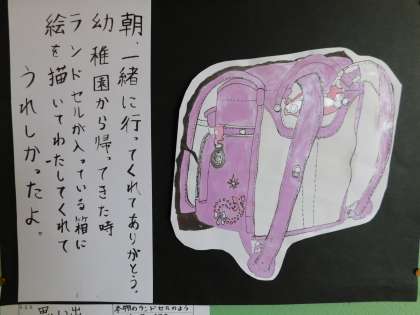 朝、一緒に行ってくれてありがとう。
幼稚園から帰ってきた時
ランドセルが入っている箱に
絵を描いてわたしてくれて
うれしかったよ。
思い出
本物のランドセルのよう